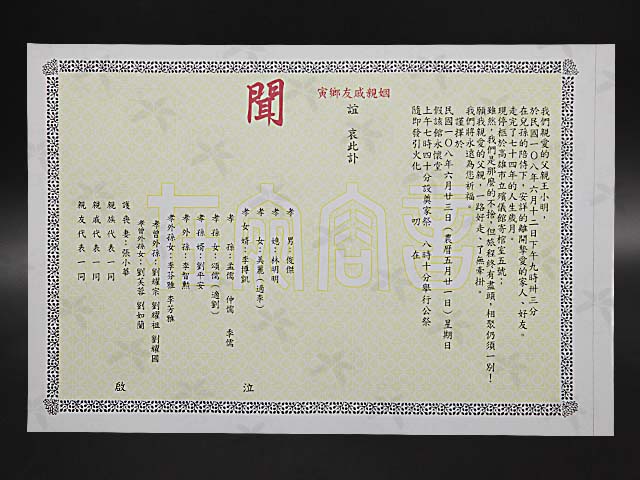 我們親愛的父親王小明
於民國一〇八年六月十二日下午九時卅三分
在兒孫的陪侍下，安詳的離開摯愛的家人、好友。
走完了七十四年的人生歲月。
現停柩於高雄市立殯儀館寄棺室五號
雖然，我們是那麼的不捨，但旅程終有盡頭，相聚仍須一別！
願我親愛的父親，一路好走，了無牽掛。
我們將永遠為您祈福。
謹擇於
民國一〇八年六月廿三日（農曆五月廿一日）星期日
假該館永懷堂
上午七時四十分設奠家祭，八時十分舉行公祭
隨即發引火化
叨在
姻親戚友鄉寅
誼
哀此訃
聞
孝男：俊傑
孝媳：林明明
孝女：美麗（適李）
孝女婿：李博凱
孝孫：孟儒 仲儒 季儒
孝孫女：頌儒（適劉）
孝孫婿：劉平安
孝外孫：李智勲
孝外孫女：李芬雅 李芳雅
孝曾外孫：劉耀宗 劉耀祖 劉耀國
孝曾外孫女：劉芙蓉 劉如蘭
護喪妻：張小華
親族代表一同
親戚代表一同
親友代表一同
泣
啟